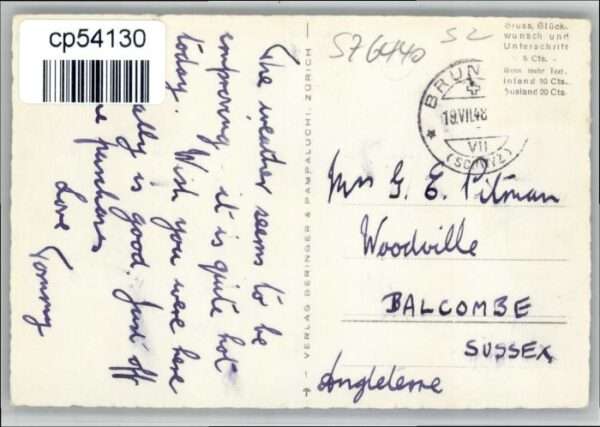 cp54130
The weather seems to be
improving - it is quite hot
today. Wish you were here
ally is good. Just off
purchases
Love
Tommy
VERLAG BERINGER & PAMPALUCHI, ZÜRICH
576440
52
Gruss, Glück-
wunsch und
Unterschrift
5 Cts.
Wenn mehr Text.
Inland 10 Cts.
Ausland 20 Cts.
BRUN
19.VII.48
VII
(SCHWYZ)
Mrs G. E. Pitman
Woodville
BALCOMBE
SUSSEX
Angleterre